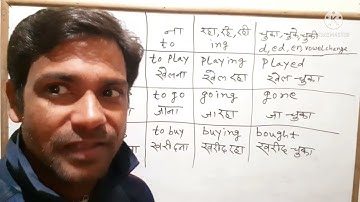 ना रहा, रहे, रही चुका, चुके, चुकी
to ing d, ed, en, vowel change
to play playing played
खेलना खेल रहा खेल चुका
to go going gone
जाना जा रहा जा चुका
to buy buying bought
खरीदना खरीद रहा खरीद चुका